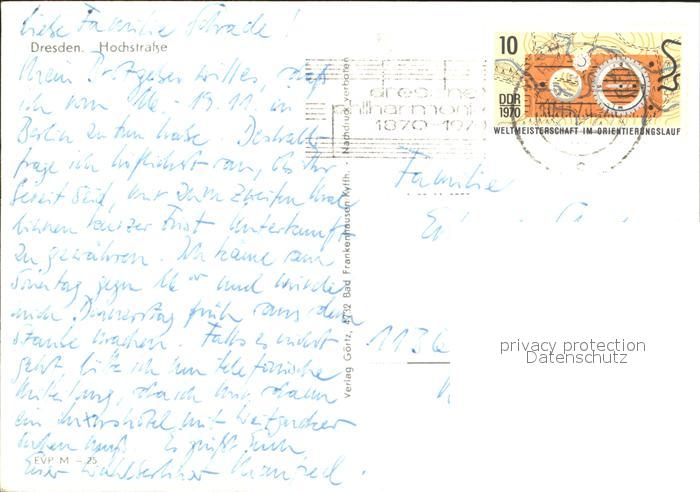 Liebe Familie Schrade!
Dresden. Hochstraße
Mein Brötgeber will es, daß
ich vom 16. - 19.11. in
Berlin zu tun habe. Deshalb
frage ich höflichst an, ob Ihr
bereit seid, mir zum zweiten Male
binnen kurzer Frist Unterkunft
zu gewähren. Ich käme am
Sonntag gegen und würde
mich Donnerstag früh aus dem
Staube machen. Falls es nicht
geht, bitte ich um telefonische
Mitteilung, da ich mir dann
ein Interhotel mit Weitgucker
suchen muß. Es grüßt Euch
EVP M - 25
Euer Wahlberliner Manfred.
Verlag Görtz, 4732 Bad Frankenhausen Kyffh. · Nachdruck verboten
dresdner
philharmonie
1870-1970
10
DDR
1970
WELTMEISTERSCHAFT IM ORIENTIERUNGSLAUF
Familie
1136
privacy protection
Datenschutz